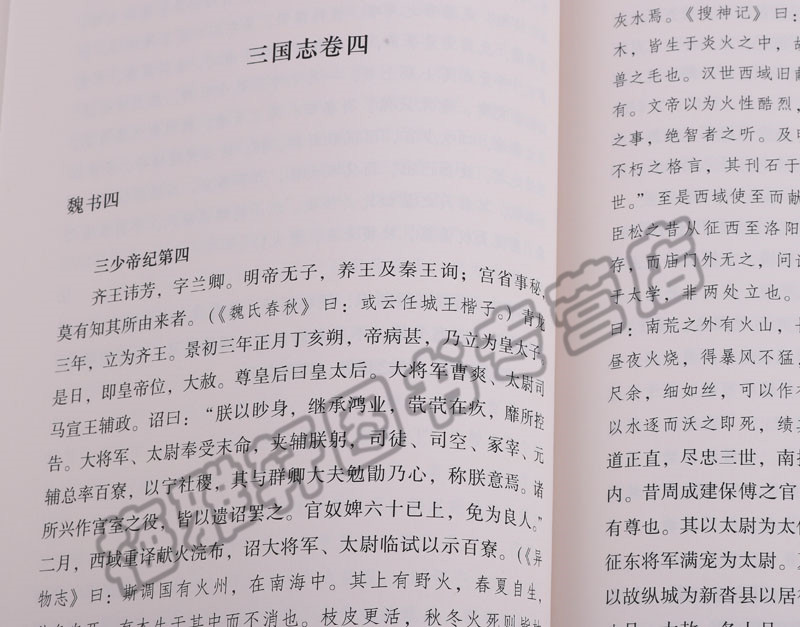 三国志卷四
魏书四
三少帝纪第四
齐王讳芳，字兰卿。明帝无子，养王及秦王询；宫省事秘，
莫有知其所由来者。（《魏氏春秋》曰：或云任城王楷子。）青龙
三年，立为齐王。景初三年正月丁亥朔，帝病甚，乃立为皇太子。
是日，即皇帝位，大赦。尊皇后曰皇太后。大将军曹爽、太尉司
马宣王辅政。诏曰：“朕以眇身，继承鸿业，茕茕在疚，靡所控
告。大将军、太尉奉受末命，夹辅朕躬，司徒、司空、冢宰、元
辅总率百寮，以宁社稷，其与群卿大夫勉勖乃心，称朕意焉。诸
所兴作宫室之役，皆以遗诏罢之。官奴婢六十已上，免为良人。”
二月，西域重译献火浣布，诏大将军、太尉临试以示百寮。（《异
物志》曰：斯调国有火州，在南海中。其上有野火，春夏自生，
秋冬自死。有木生于其中而不消也。枝皮更活，秋冬火死则皆
灰水焉。《搜神记》曰
木，皆生于炎火之中，故
兽之毛也。汉世西域旧献
有。文帝以为火性酷烈，
之事，绝智者之听。及明
不朽之格言，其刊石于
世。”至是西域使至而献
臣松之昔从征西至洛阳
存，而庙门外无之，问
于大学，非两处立也。
曰：南荒之外有火山，
昼夜火烧，得暴风不猛，
尺余，细如丝，可以作
以水逐而沃之即死，绩其
道正直，尽忠三世，南
内。昔周成建保傅之官
有尊也。其以太尉为太
征东将军满宠为太尉。
以故纵城为新沓县以居
梅雅轩图书专营店